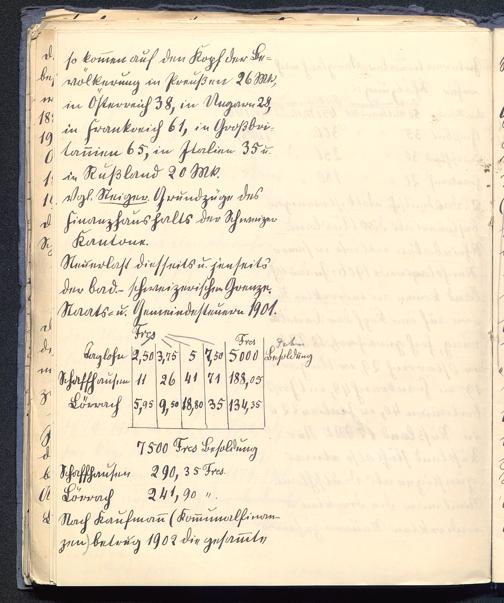 so kom̅en auf den Kopf der Be-
völkerung in Preußen 26 Mk,
in Österreich 38, in Ungarn 28,
in Frankreich 61, in Großbri-
tan̅ien 65, in Italien 35 u.
in Rußland 20 Mk.
Vgl. Steiger. Grundzüge des
Finanzhaushalts der Schweizer
Kantone.
Steuerlast diesseits u. jenseits
der bad-schweizerischen Grenze.
Staats- u. Gemeindesteuern 1901.
Frcs Frcs
Taglohn 2,50 3,75 5 7,50 5000 Besoldung
Schaffhausen 11 26 41 71 188,05
Lörrach 5,95 9,50 18,80 35 134,35
7500 Frcs Besoldung
Schaffhausen 290,35 Frcs.
Lörrach 241,90 ".
Nach Kaufman̅ (Kom̅unalfinan-
zen) betrug 1902 die gesam̅te